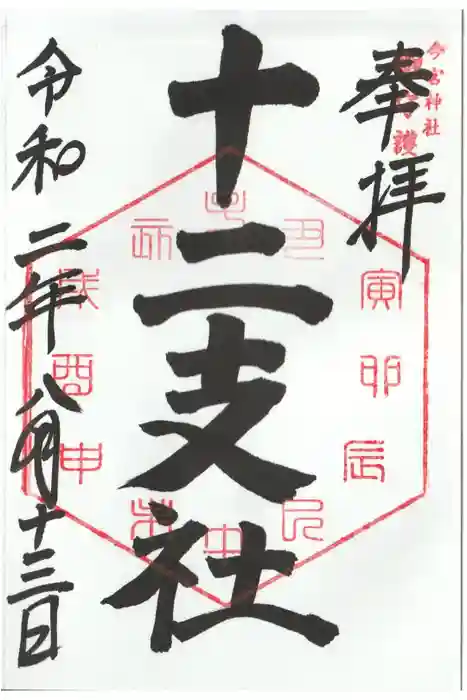 奉拝
今宮神社
護
十二支社
寅
卯
辰
巳
午
未
申
酉
戌
令和二年八月十三日